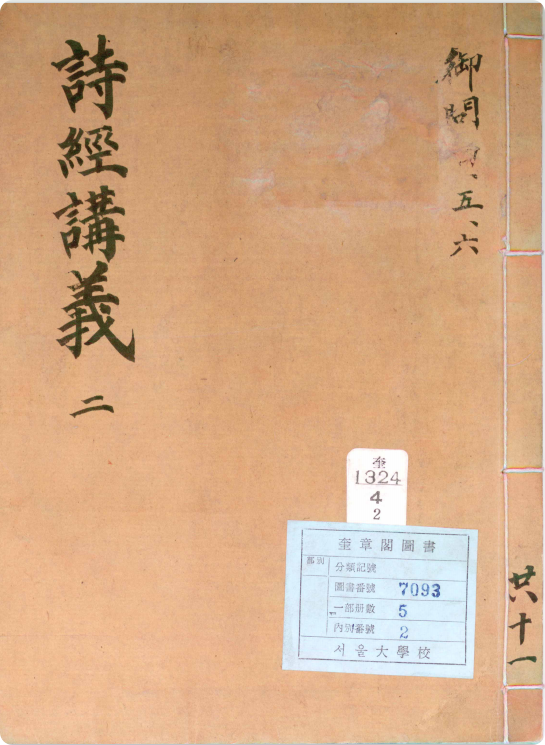 御問 四、五、六
詩經講義 二
奎
1324
4
2
奎章閣圖書
部別
分類記號
圖書番號 7093
一部冊數 5
內別番號 2
서울大學校
共十一